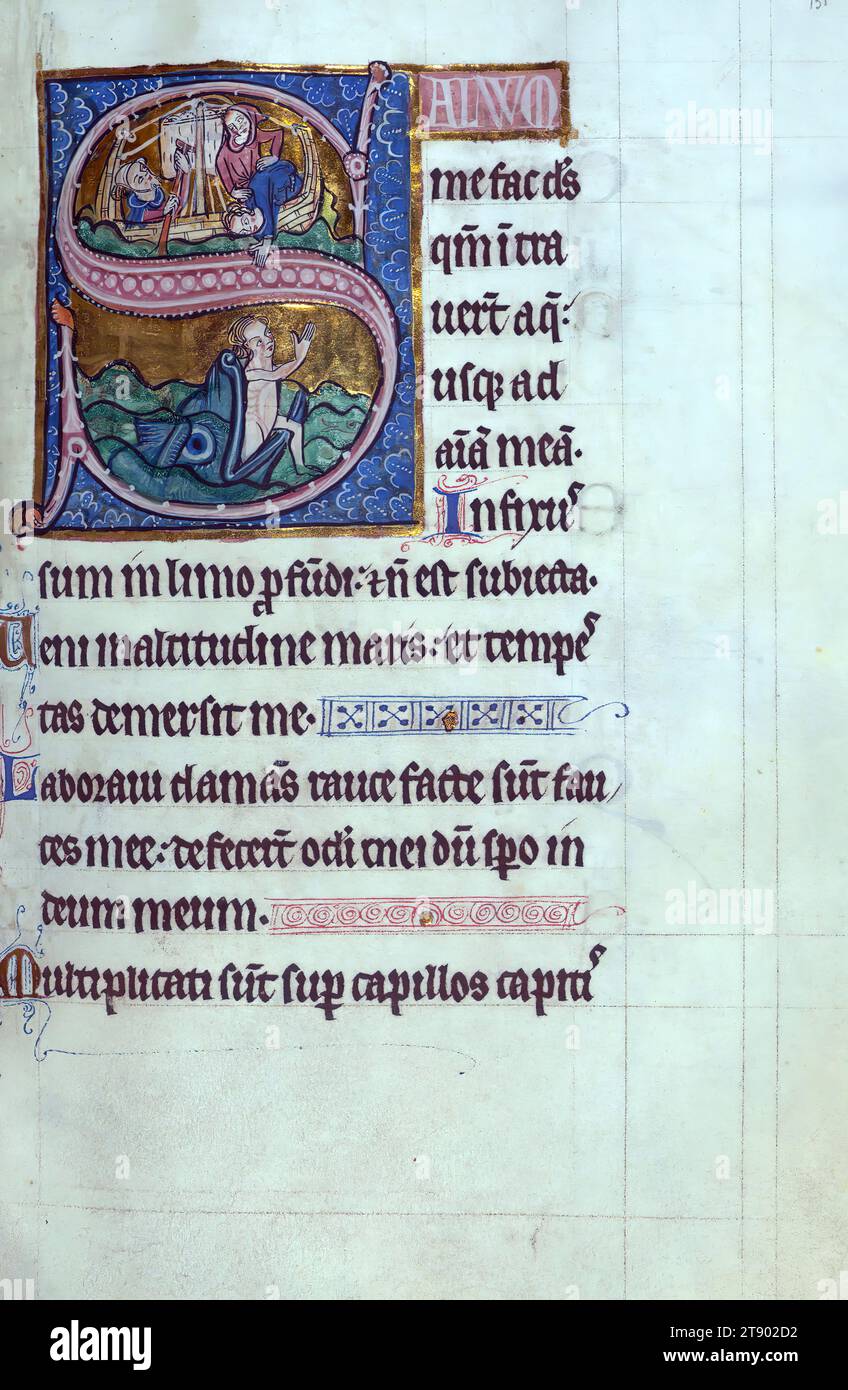 131
SALVVM
me fac ds
qm̄ ītra
uert̄ aq̄:
usq; ad
aīā meā.
Infixus
sum in limo ꝓfūdi: ⁊ n̄ est subiecta.
Ueni in altitudine maris: et tempes
tas demersit me.
Laboraui clamās rauce facte sūt fau/
ces mee: defecert̄ oc̄li mei dū spo in
deum meum.
Multiplicati sūt suꝑ capillos capitis
alamy
Image ID: 2T902D2
www.alamy.com